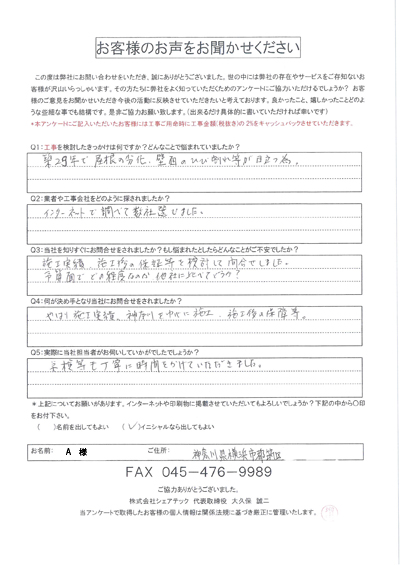 お客様のお声をお聞かせください
この度は弊社にお問い合わせをいただき、誠にありがとうございました。世の中には弊社の存在やサービスをご存知ないお
客様が沢山いらっしゃいます。その方たちに弊社をよく知っていただくためのアンケートにご協力いただけるでしょうか? お客
様のご意見をお聞かせいただき今後の活動に反映させていただきたいと考えております。良かったこと、嬉しかったことどのよう
な些細な事でも結構です。是非ご協力お願い致します。(出来るだけ具体的に書いていただければ幸いです)
*本アンケートにご記入いただいたお客様には工事ご用命時に工事金額(税抜き)の2%をキャッシュバックさせていただきます。
Q1:工事を検討したきっかけは何ですか?どんなことで悩まれていましたか?
築29年で屋根の劣化、壁面のひび割れ等が目立つ為。
Q2:業者や工事会社をどのように探されましたか?
インターネットで調べて数社選びました。
Q3:当社を知りすぐにお問合せをされましたか?もし悩まれたとしたらどんなことがご不安でしたか?
施工実績、施工後の保証等を検討して問合せしました。
予算面でどの程度なのか他社に比べてどうか?
Q4:何が決め手となり当社にお問合せをされましたか?
やはり施工実績、神奈川を中心に施工、施工後の保障等。
Q5:実際に当社担当者がお伺いしていかがでしたでしょうか?
点検等も丁寧に時間をかけていただきました。
*上記についてお願いがあります。インターネットや印刷物に掲載させていただいてもよろしいでしょうか?下記の中から〇印
をお付下さい。
( )名前を出してもよい (✓)イニシャルなら出してもよい
お名前: A 様 ご住所: 神奈川県横浜市都筑区
FAX 045-476-9989
ご協力ありがとうございました。
株式会社シェアテック 代表取締役 大久保 誠二
当アンケートで取得したお客様の個人情報は関係法規に基づき厳正に管理いたします。